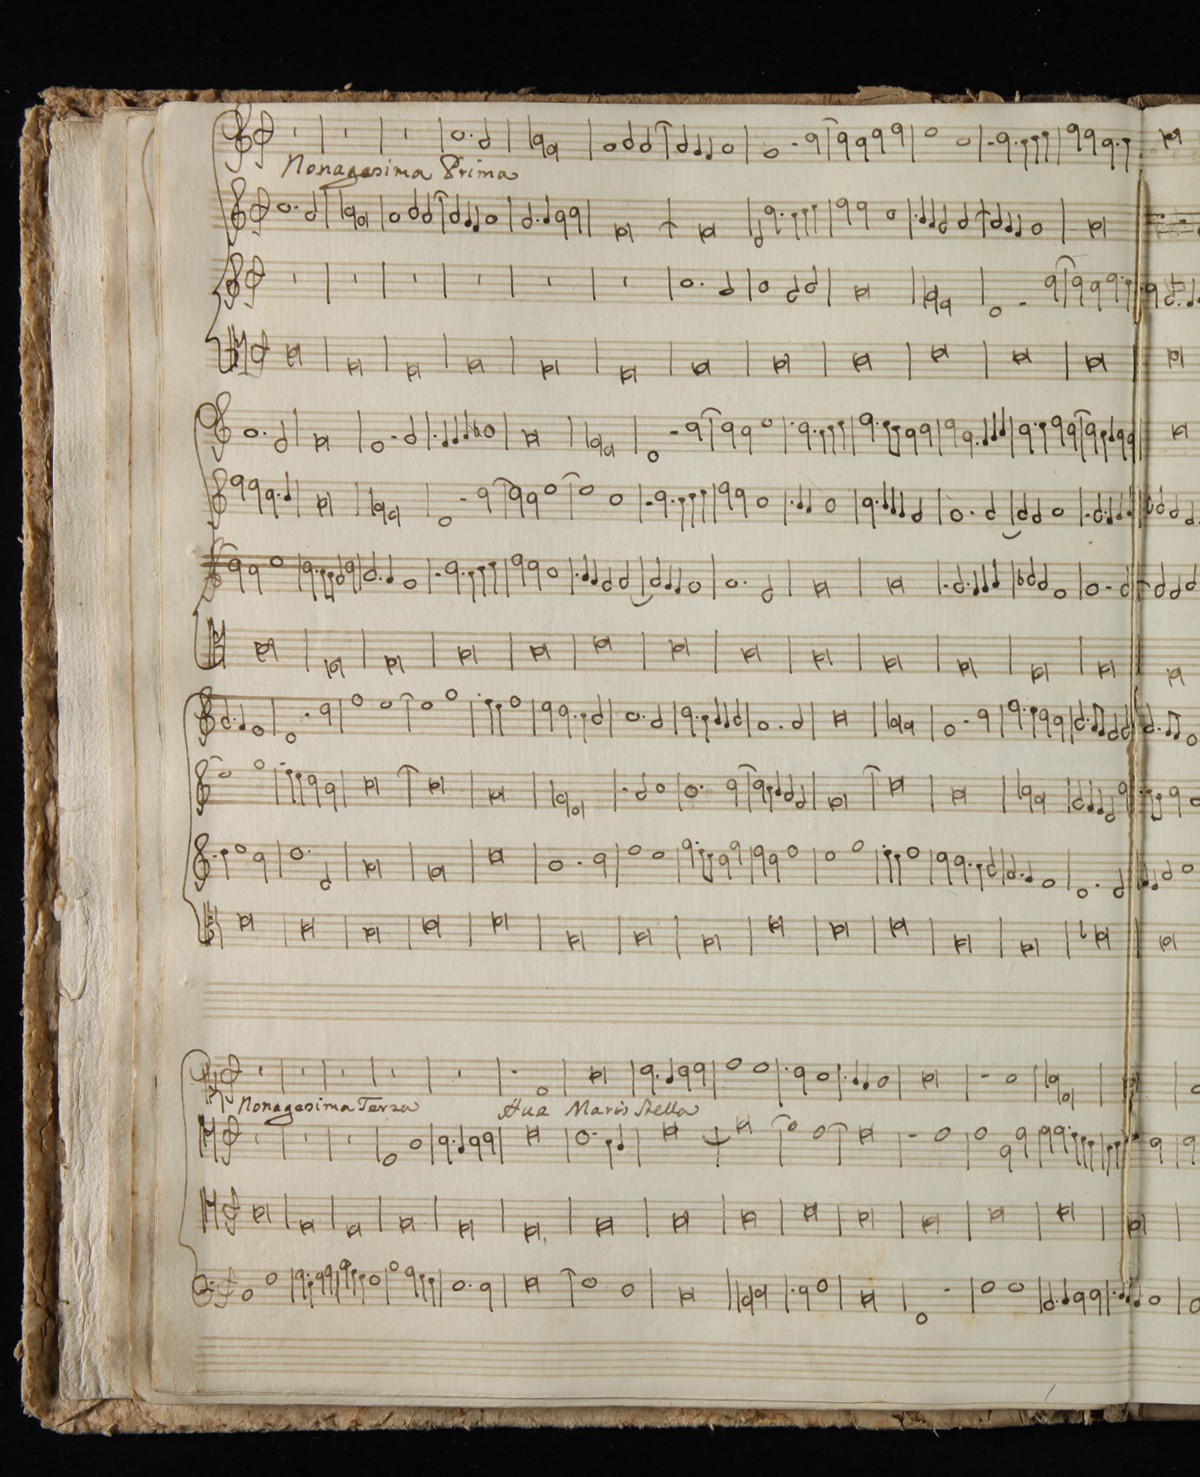 Nonagesima Prima
Nonagesima Terza Aue Maris Stella